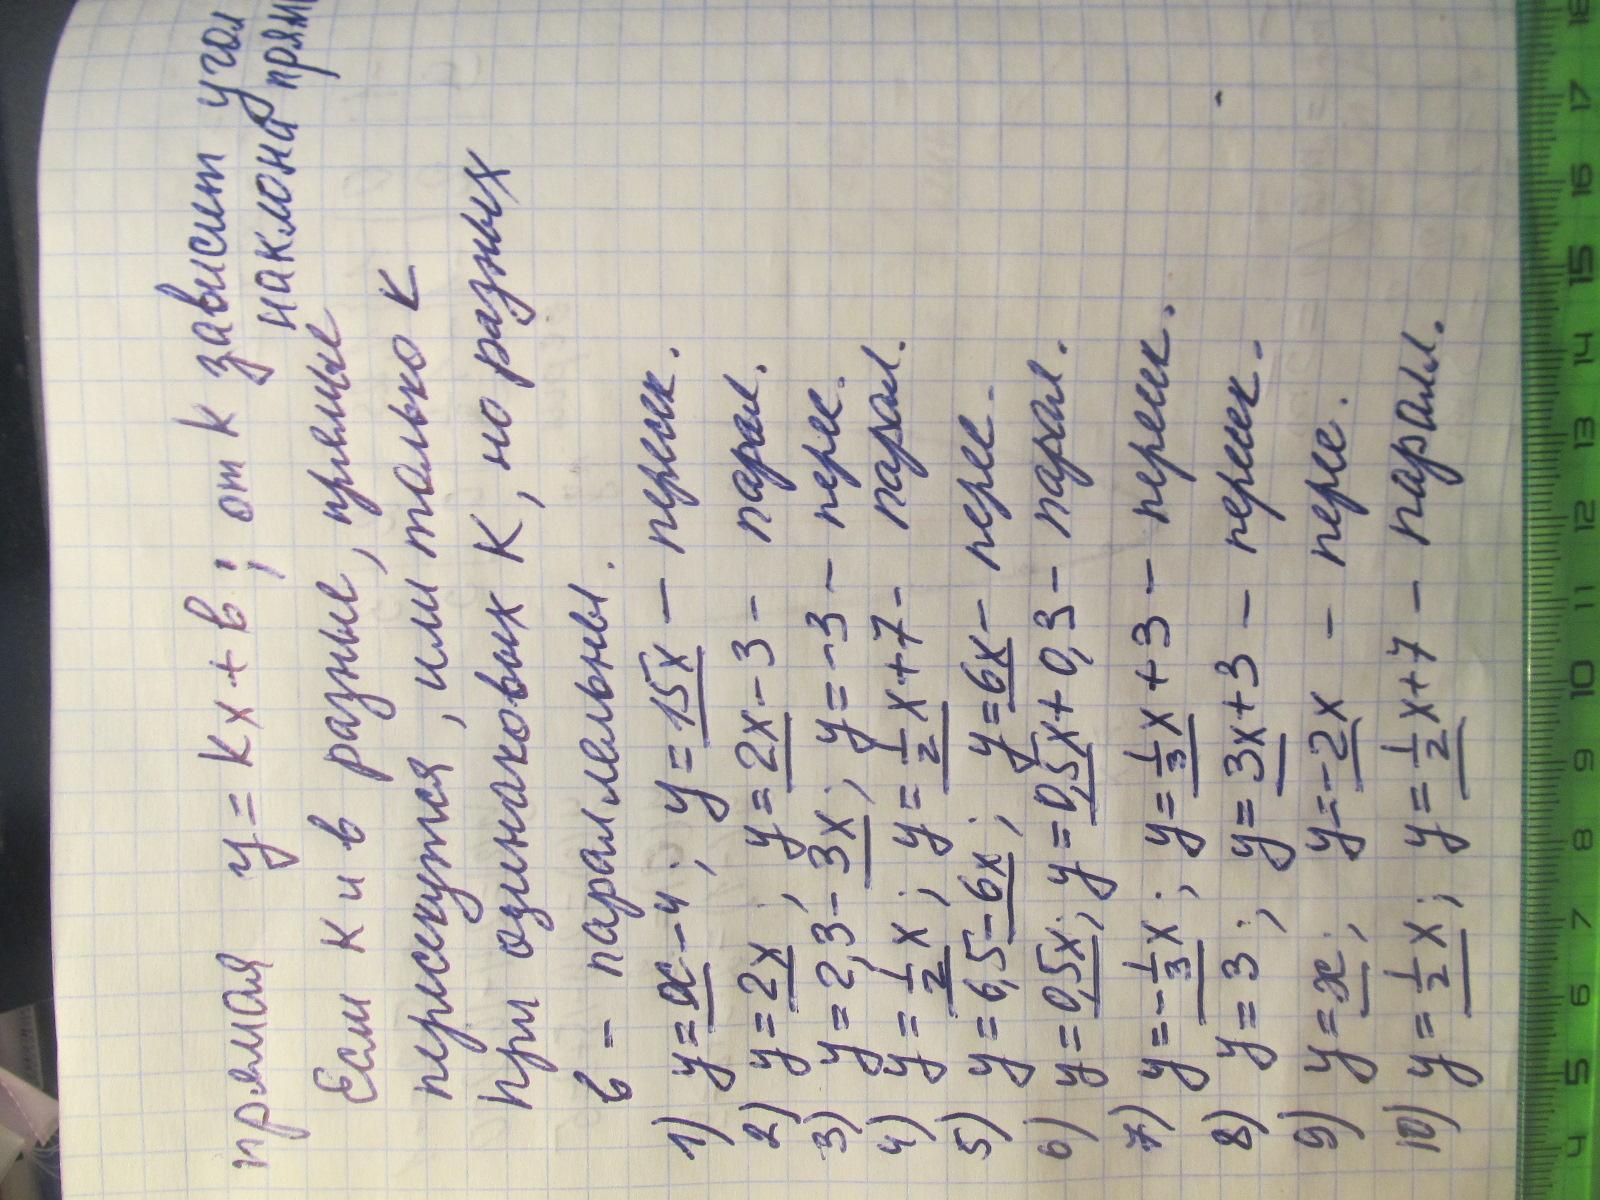 прямая y = kx + в ; от k зависит угол
наклона
Если к и в разные, прямые
пересекутся, или только к
При одинаковых К, но разных
в - параллельны.
1) y = x - 4 ; y = 15x - перек.
2) y = 2x ; y = 2x - 3 - парал.
3) y = 2,3 - 3x ; y = -3 - пере.
4) y = 1/2 x ; y = 1/2 x + 7 - парал.
5) y = 6,5 - 6x ; y = 6x - пере.
6) y = 0,5x ; y = 0,5x + 0,3 - парал.
7) y = -1/3 x ; y = 1/3 x + 3 - перек.
8) y = 3 ; y = 3x + 3 - перек.
9) y = x ; y = -2x - пере.
10) y = 1/2 x ; y = 1/2 x + 7 - парал.
4 5 6 7 8 9 10 11 12 13 14 15 16 17 18